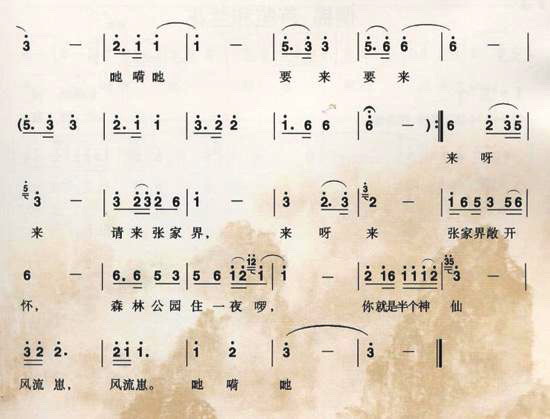 3 — | 2. 1 1 | 1 — | 5. 3 3 | 5. 6 6 | 6 — |
吔 嗬 吔 要 来 要 来
(5. 3 3 | 2. 1 1 | 3. 2 2 | 1. 6 6 | 6 — ) :| 6 2 3 5 |
来 呀
5 3 — | 3 2 3 2 6 | 1 — | 3 2. 3 | 3 2 — | 1 6 5 3 5 6 |
来 请 来 张 家 界, 来 呀 来 张家界敞开
6 — | 6. 6 5 3 | 5 6 1 2 12 1 | 1 — | 2 1 6 1 1 1 2 | 35 3 — |
怀, 森 林 公 园 住 一 夜 啰, 你就是半个神 仙
3 2 2. | 2 1 1. | 1 2 | 3 — | 3 — ‖
风流崽, 风流崽。 吔 嗬 吔